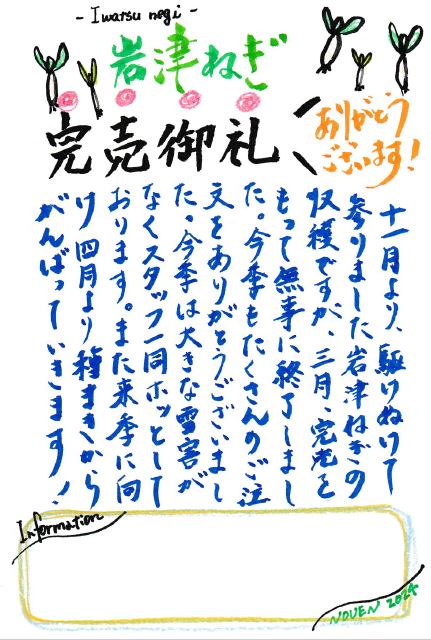 - Iwatsu negi -
岩津ねぎ
完売御礼
ありがとう
ございます!
十一月より、駆けぬけて
参りました岩津ねぎの
収穫ですが、三月、完売を
もって無事に終了しまし
た。今季もたくさんのご注
文をありがとうございまし
た。今季は大きな雪害が
なくスタッフ一同ホッとして
おります。また来季に向
け四月より種まきから
がんばっていきます!
Information
NOUEN 2024